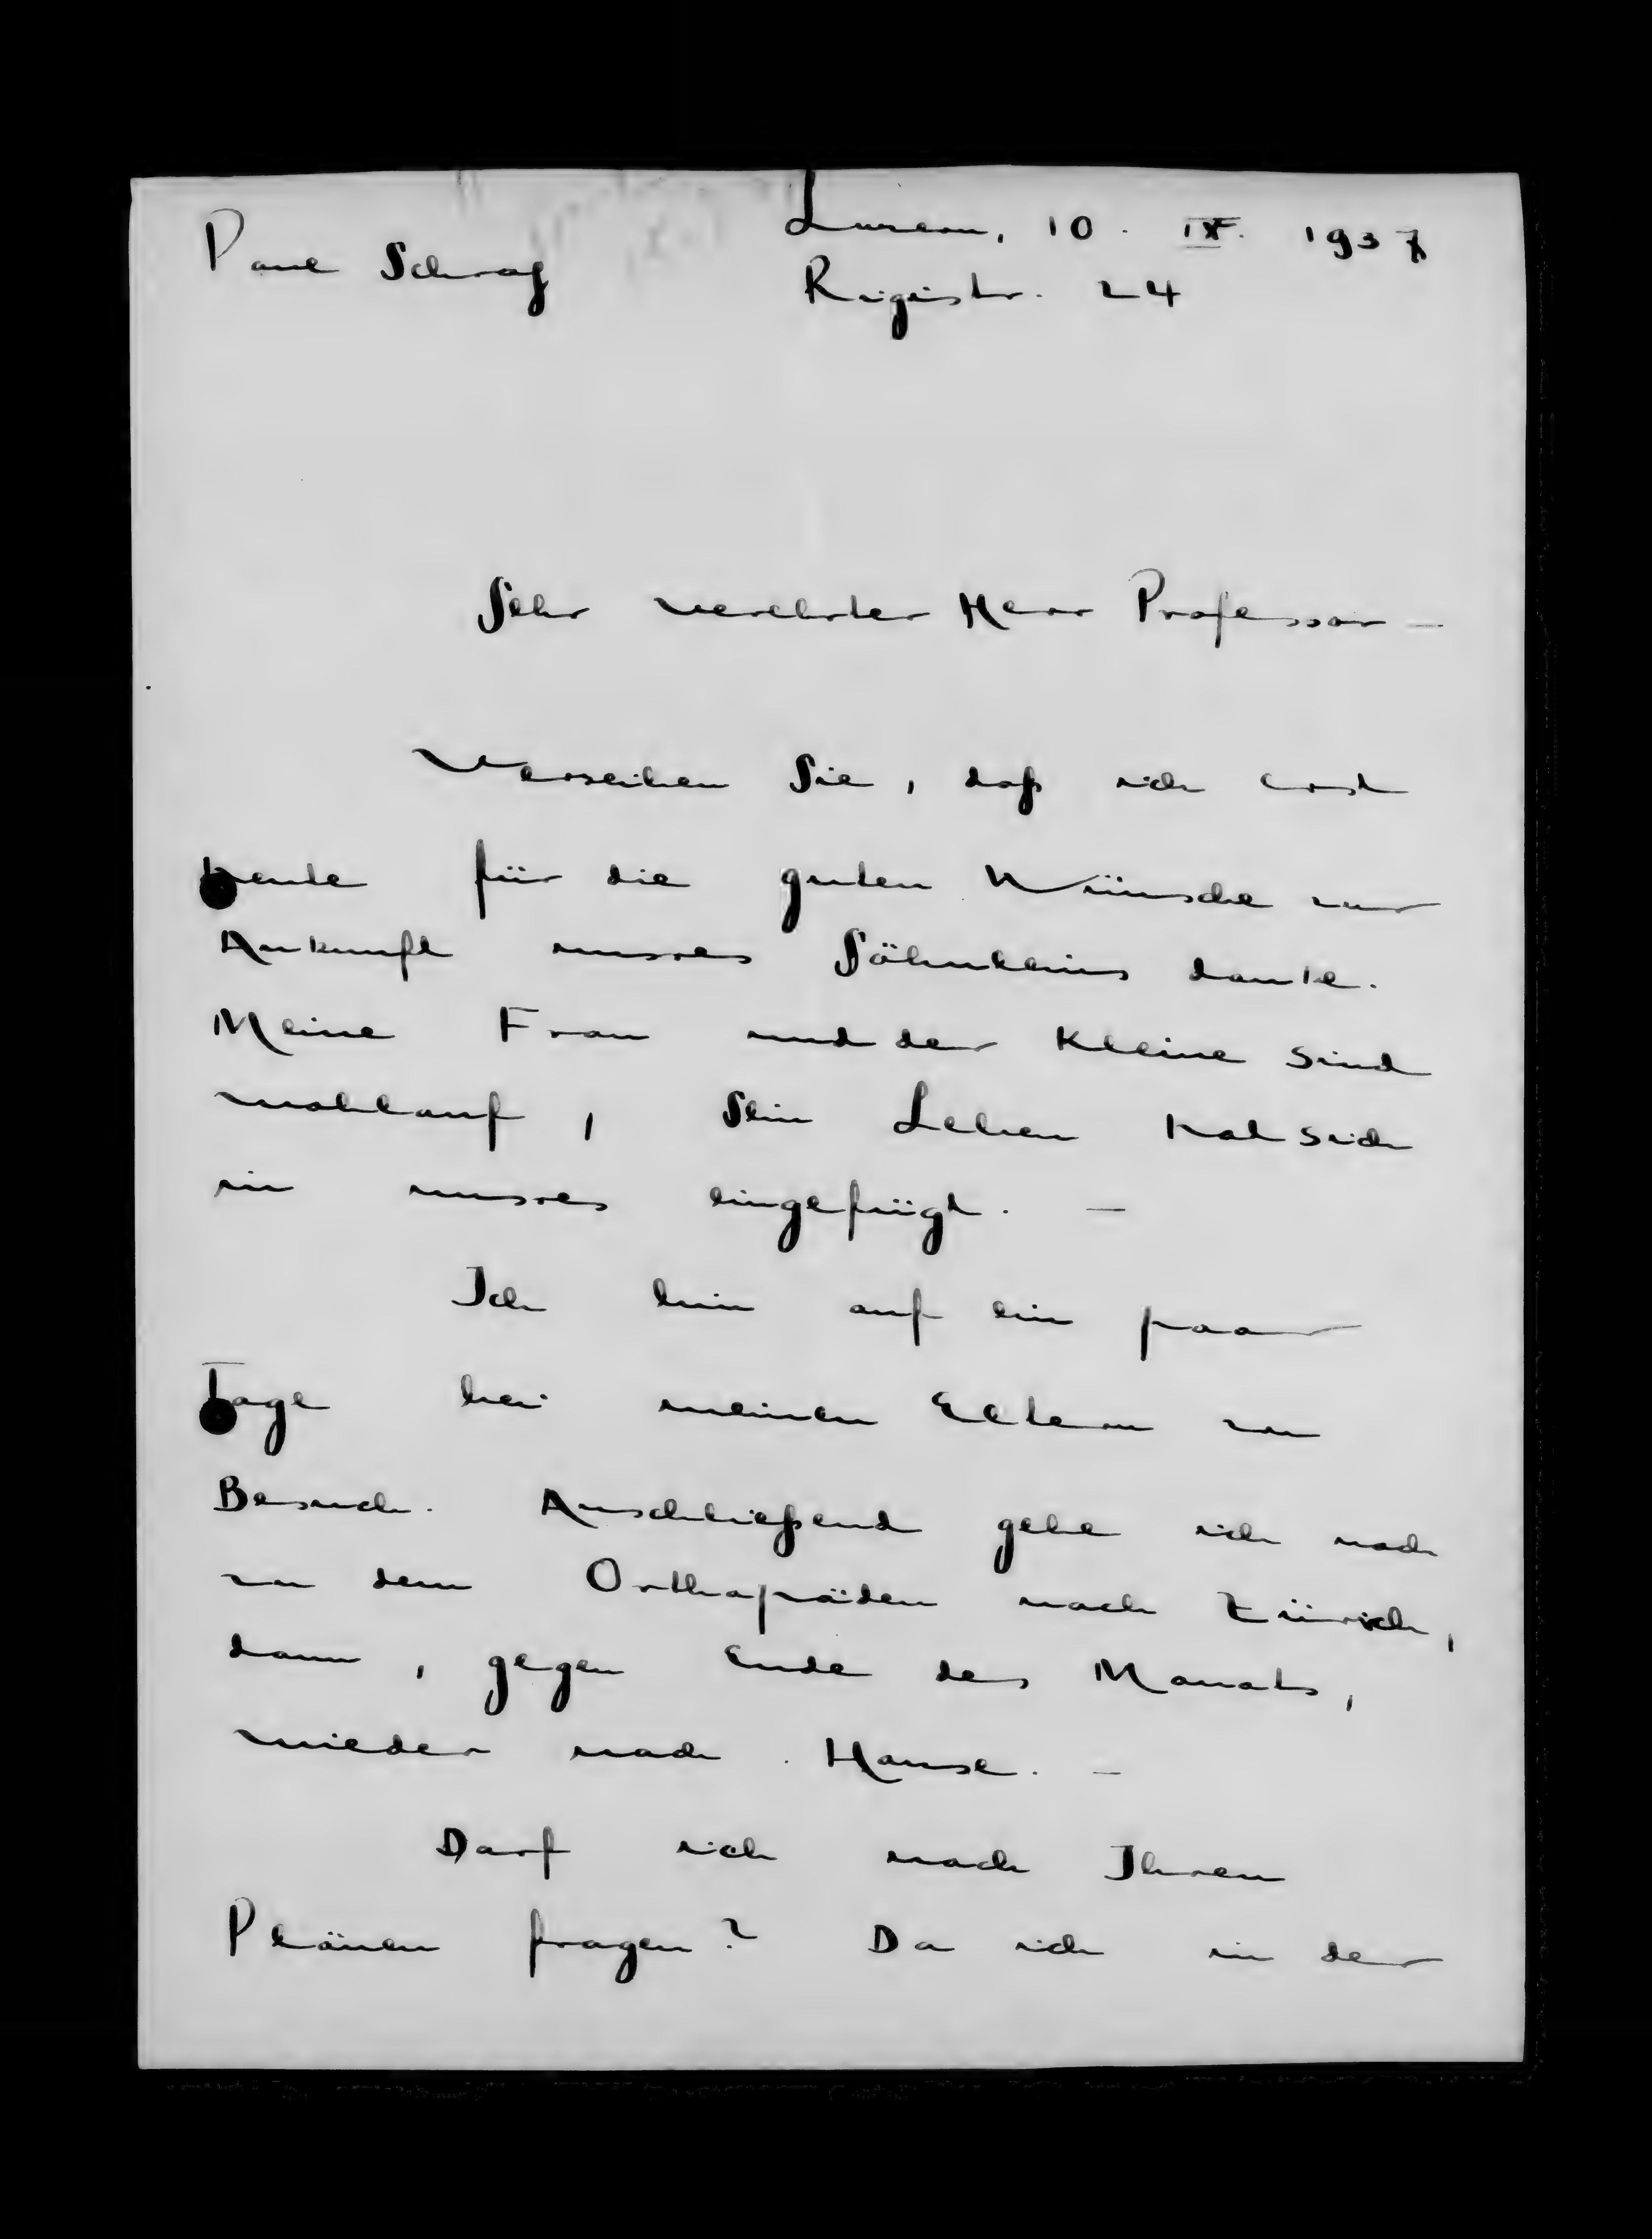 Luzern, 10. IX. 1937
Paul Schrag
Rigistr. 24
Sehr verehrter Herr Professor –
Verzeihen Sie, daß ich erst
heute für die guten Wünsche zur
Ankunft unsres Söhnleins danke.
Meine Frau und der Kleine sind
wohlauf, Sein Leben hat sich
in unsres eingefügt. –
Ich bin auf ein paar
Tage bei meinen Eltern zu
Besuch. Anschließend gehe ich noch
zu dem Orthopäden nach Zürich,
dann, gegen Ende des Monats,
wieder nach Hause. –
Darf ich nach Ihren
Plänen fragen? Da ich in der